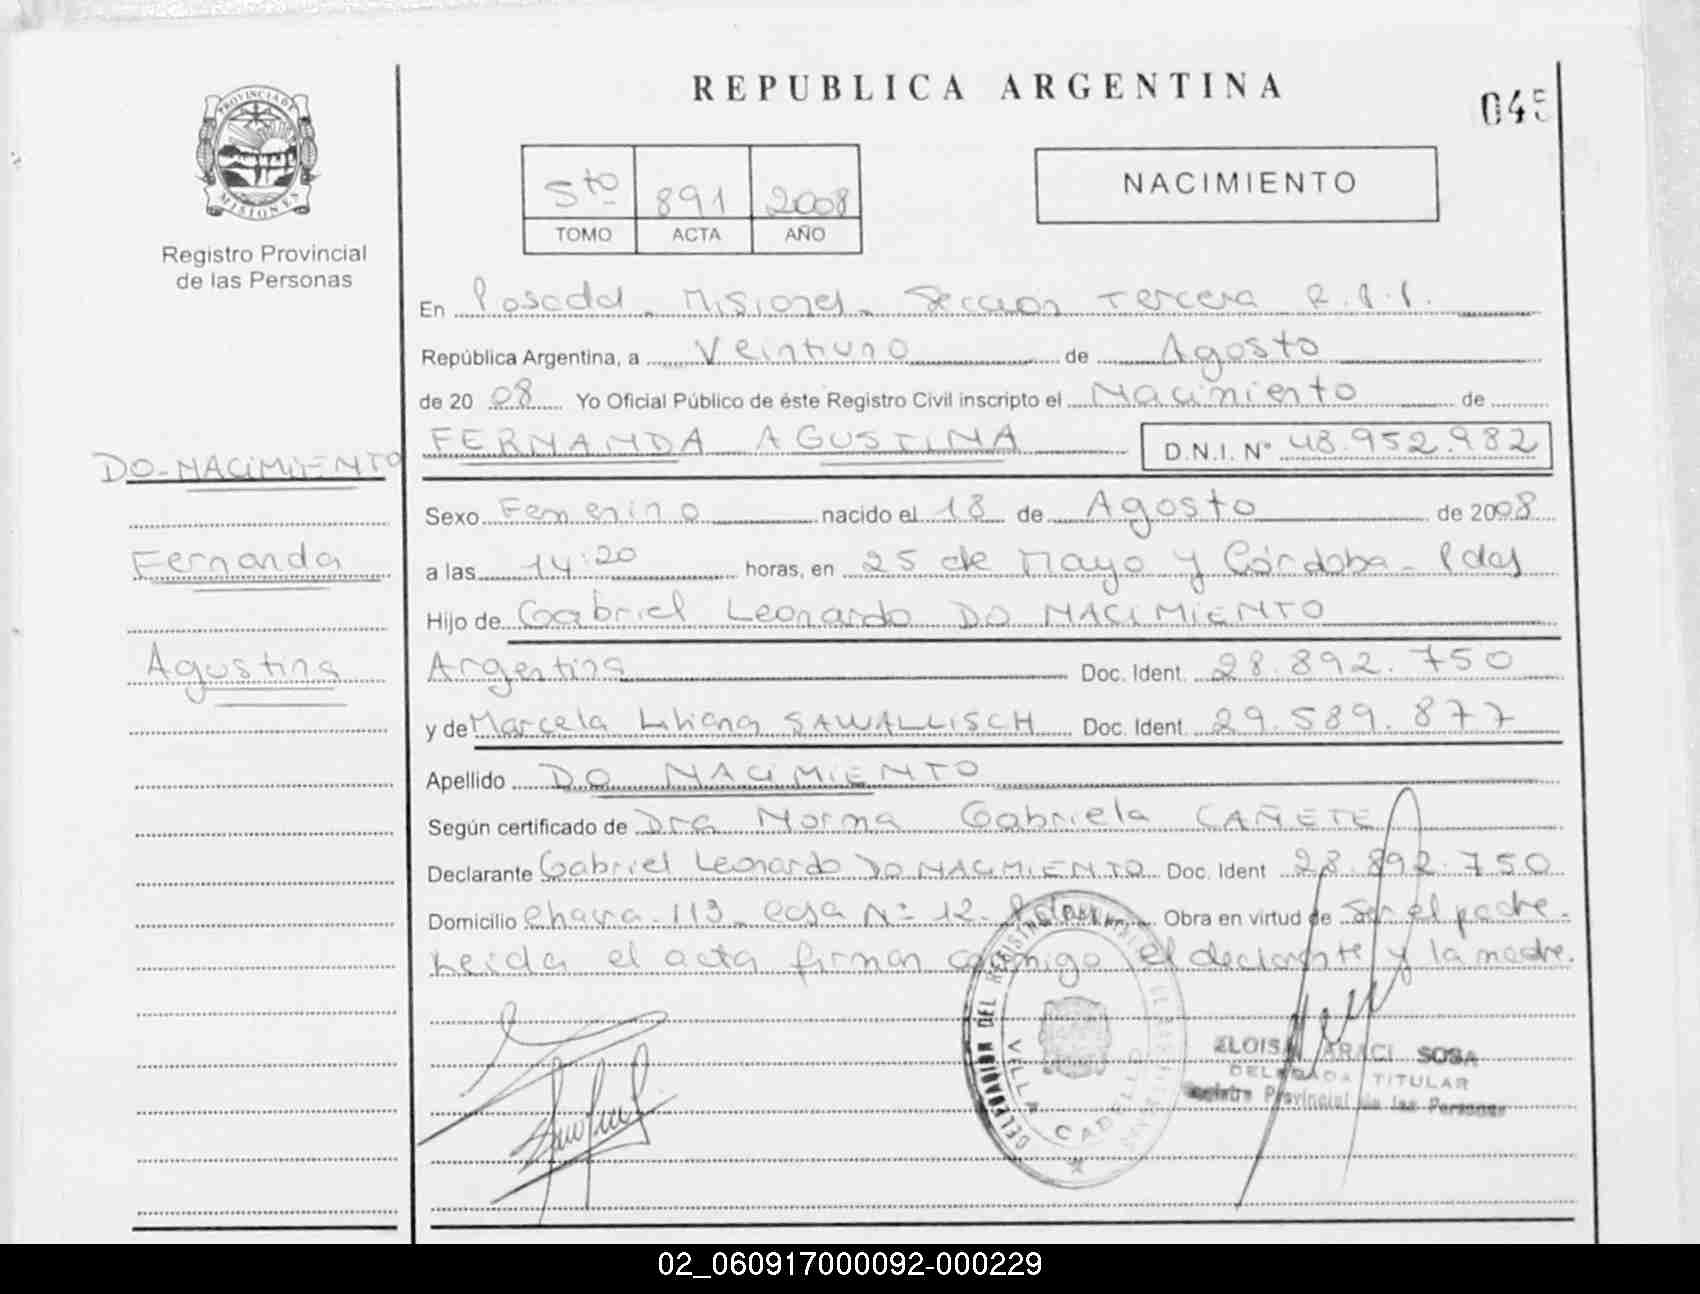 REPUBLICA ARGENTINA
045
PROVINCIA DE
MISIONES
Registro Provincial
de las Personas
5to 891 2008
TOMO ACTA AÑO
NACIMIENTO
En Posadas - Misiones - Seccion Tercera R.P.P.
República Argentina, a Veintiuno de Agosto
de 2008 Yo Oficial Público de éste Registro Civil inscripto el Nacimiento de
FERNANDA AGUSTINA D.N.I. Nº 48.952.982
DO-NACIMIENTO
Fernanda
Agustina
Sexo Femenino nacido el 18 de Agosto de 2008
a las 14:20 horas, en 25 de Mayo y Córdoba - Pdas
Hijo de Gabriel Leonardo DO NACIMIENTO
Argentina Doc. Ident. 28.892.750
y de Marcela Liliana SAWALLISCH Doc. Ident. 29.589.877
Apellido DO NACIMIENTO
Según certificado de Dra Norma Gabriela CAÑETE
Declarante Gabriel Leonardo DO NACIMIENTO Doc. Ident 28.892.750
Domicilio Chacra - 113 - Casa Nº 12 - Obra en virtud de Ser el padre -
Leida el acta firman conmigo el declarante y la madre.
DELEGACION DEL REGISTRO PROVINCIAL DE LAS PERSONAS
VILLA CABELLO
ELOISA ARACI SOSA
DELEGADA TITULAR
Registro Provincial de las Personas
02_060917000092-000229